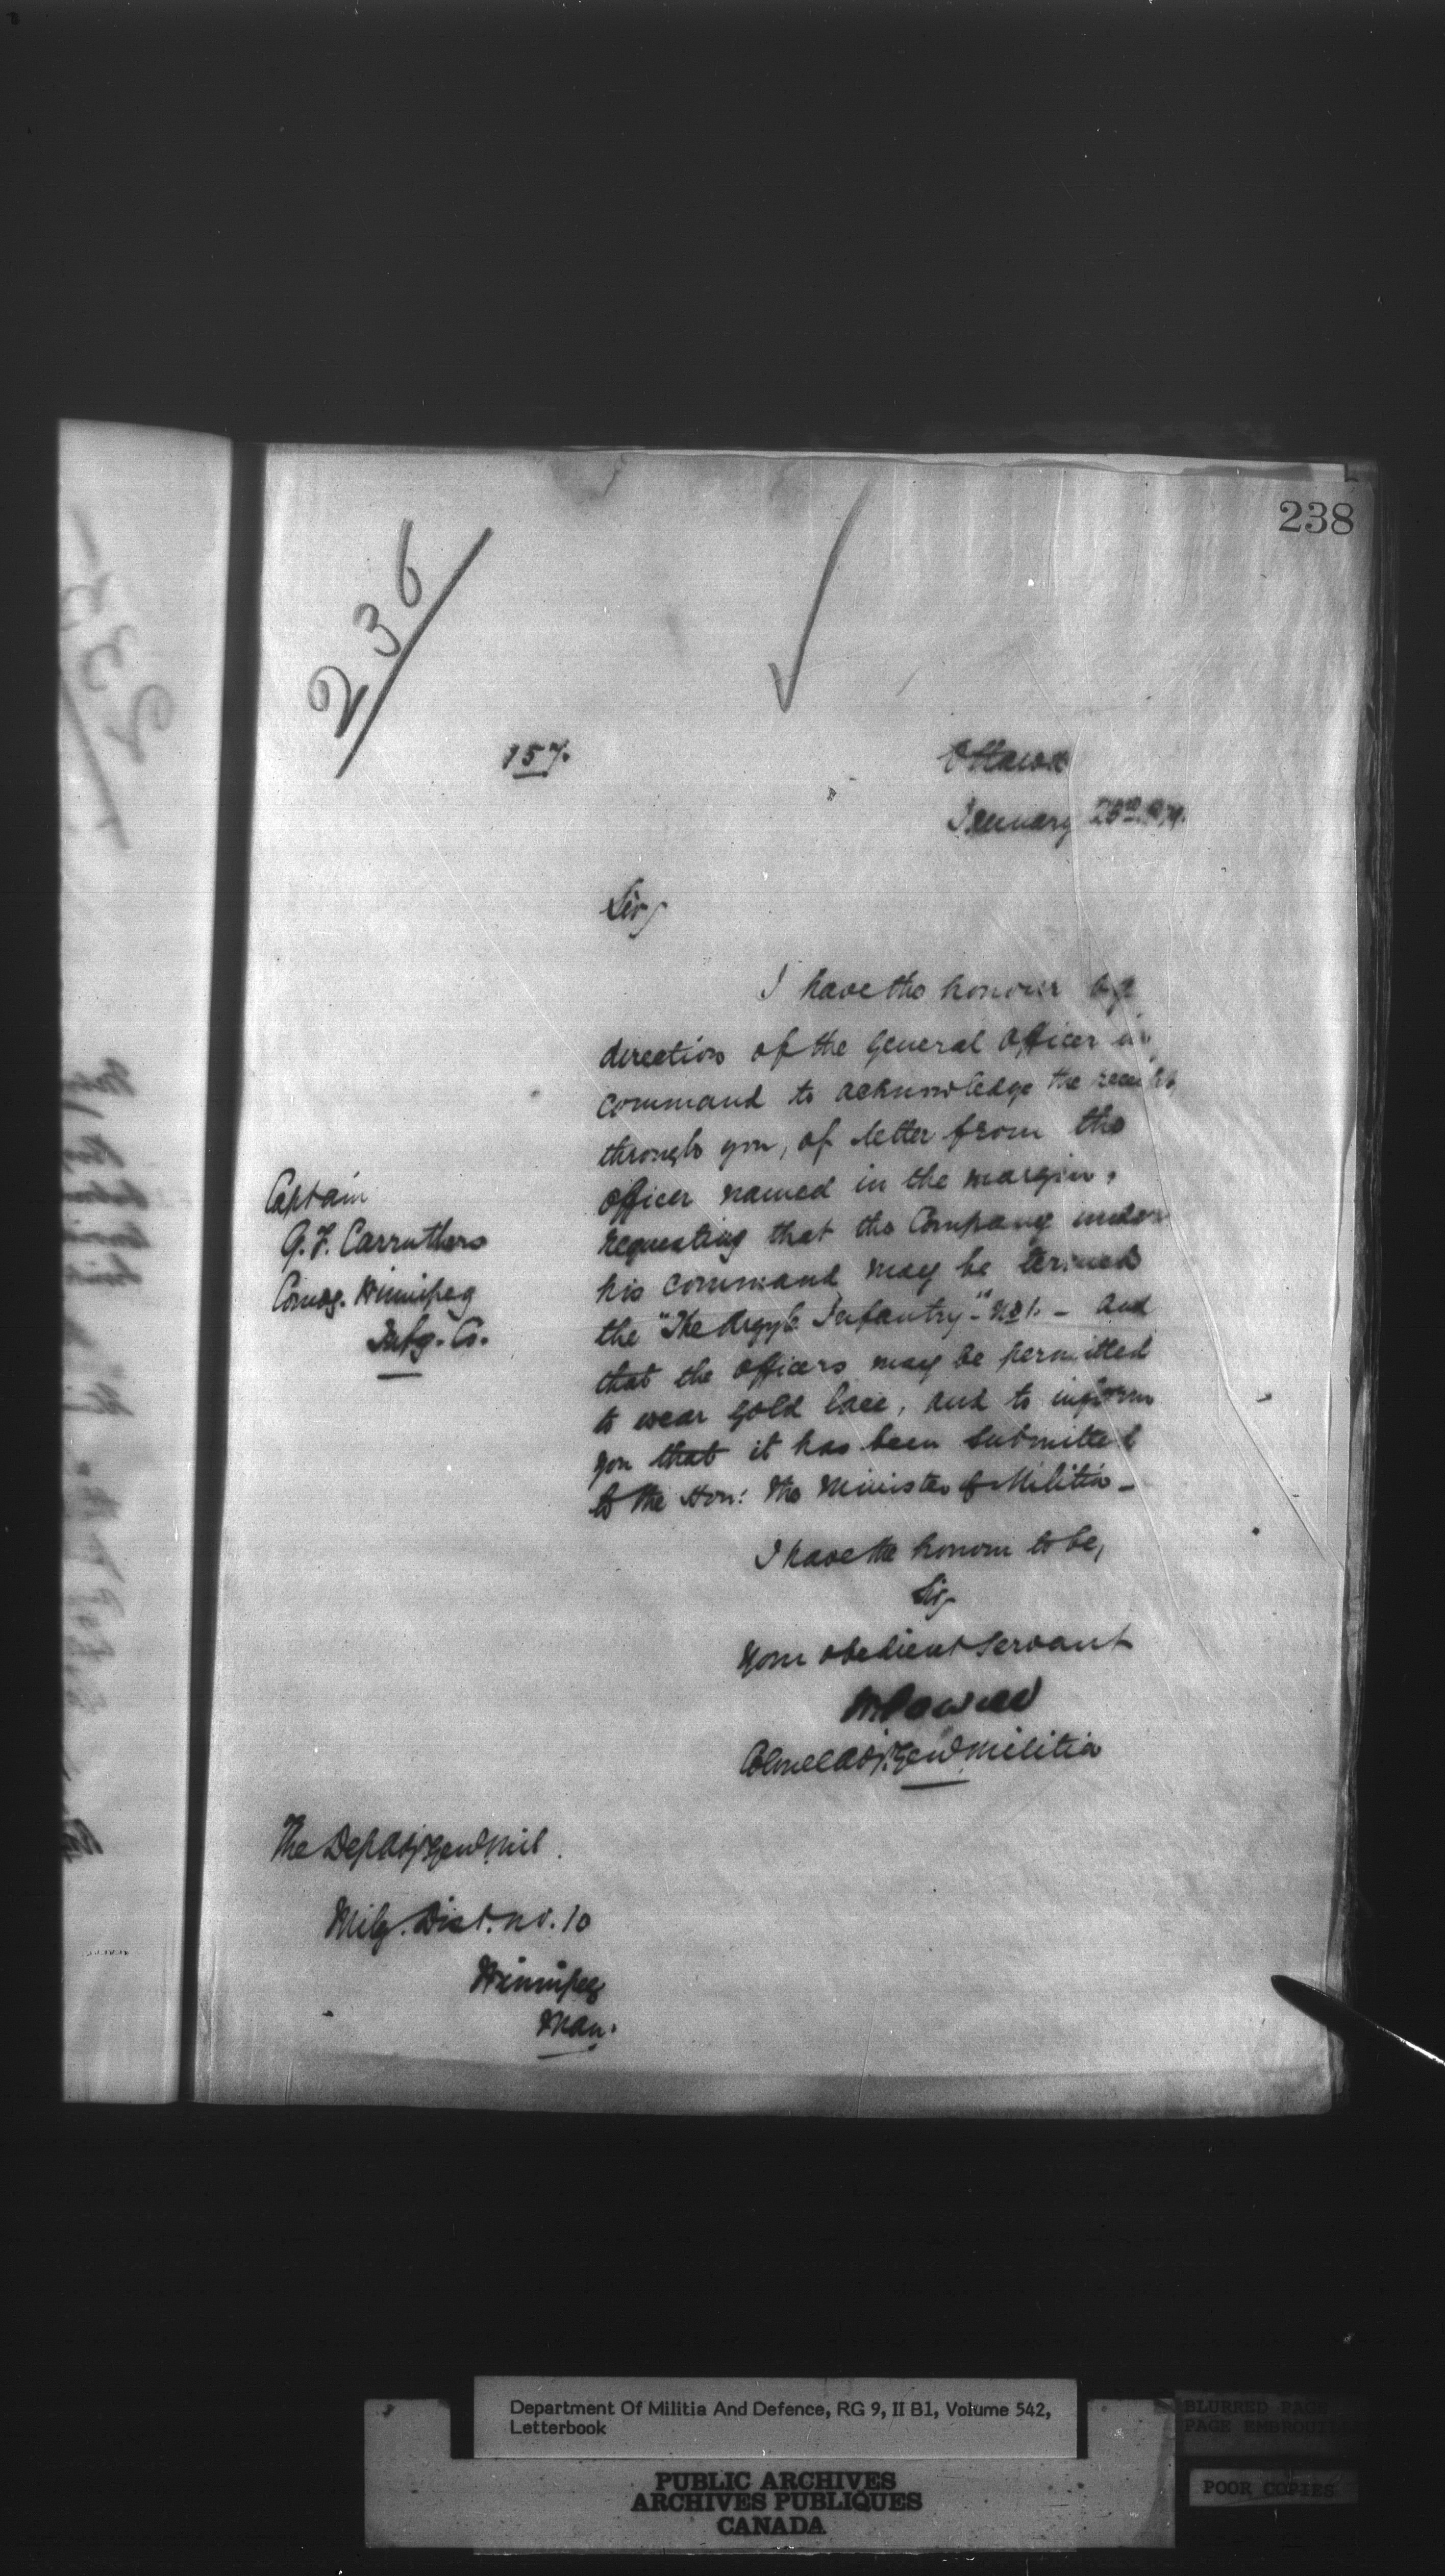 238
236
157.
Ottawa
January 23rd 1879.
Sir,
I have the honour by
direction of the General Officer in
command to acknowledge the receipt,
through you, of letter from the
officer named in the margin,
requesting that the Company under
his command may be termed
the "The Argyle Infantry"- No 1. - and
that the officers may be permitted
to wear gold lace, and to inform
you that it has been submitted
to the Hon: the Minister of Militia -
Captain
G. F. Carruthers
Comdg. Winnipeg
Infy. Co.
I have the honour to be,
Sir,
Your obedient servant
W Powell
Colonel Adj. Genl Militia
The Dep Adj Genl Mil.
Mily. Dist. no. 10
Winnipeg
Man.
Department Of Militia And Defence, RG 9, II B1, Volume 542,
Letterbook
PUBLIC ARCHIVES
ARCHIVES PUBLIQUES
CANADA
BLURRED PAGE
PAGE EMBROUIL
POOR COPIES